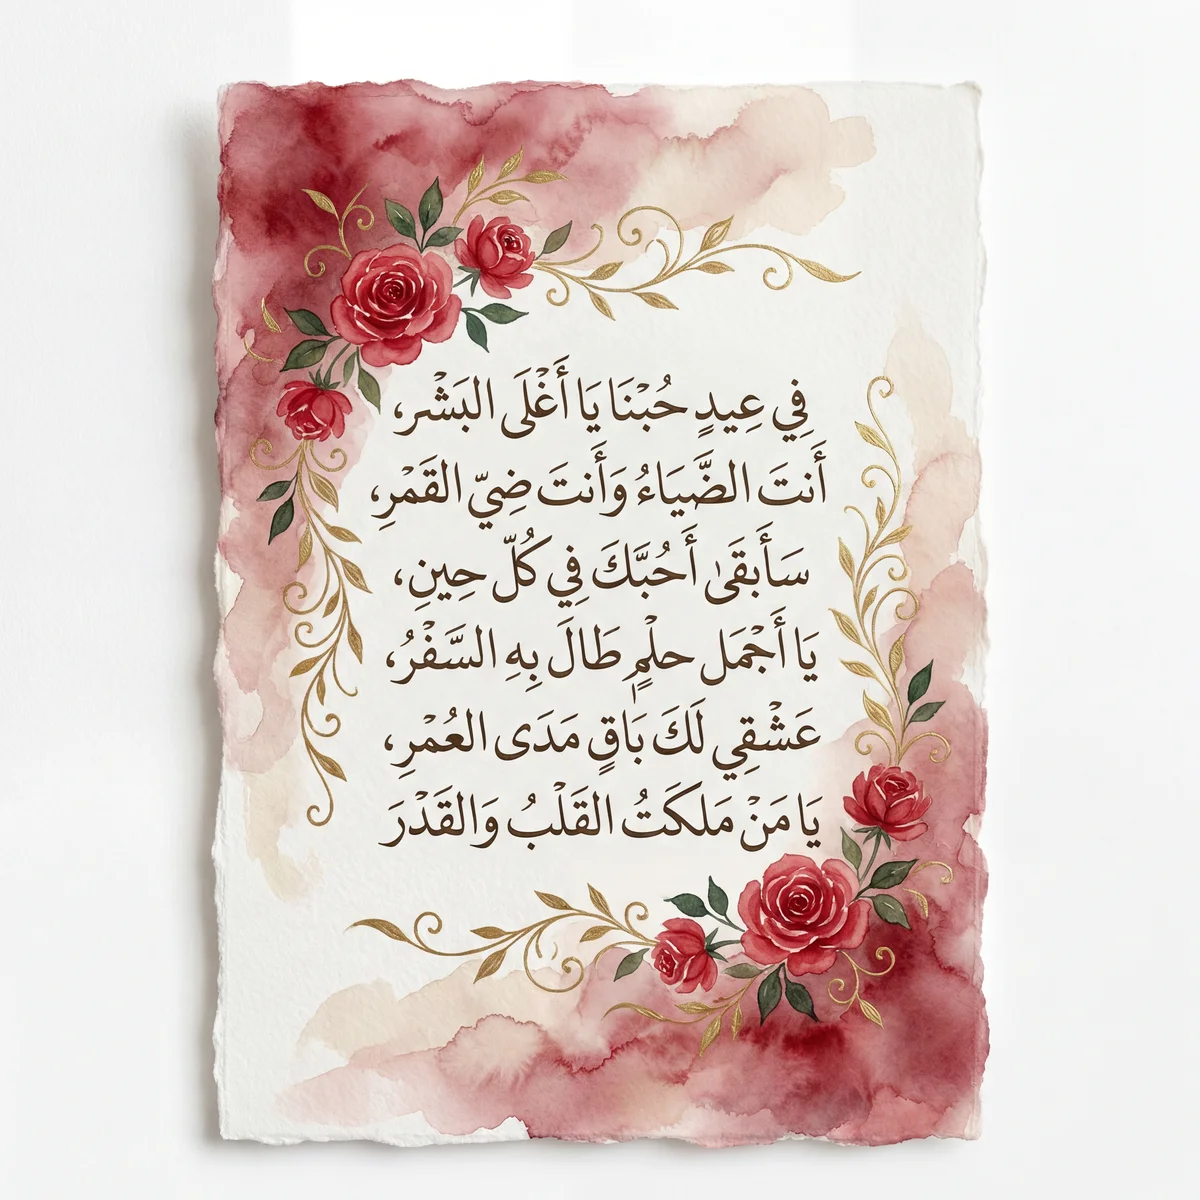 فِي عِيدٍ حُبْنَا يَا أَغْلَى البَشْر،
أَنتَ الضَّيَاءُ وَأَنتَ ضِيّ القَمْرِ،
سَأَبقَىٰ أَحُبَّكَ فِي كُلّ حِينِ،
يَا أَجْمَل حلْمٍ طَالَ بِهِ السَّفْرُ،
عَشْقِي لَكَ بَاقٍ مَدَى العُمْرِ،
يَا مَنْ مَلكَتُ القَلْبُ وَالقَدْرَ